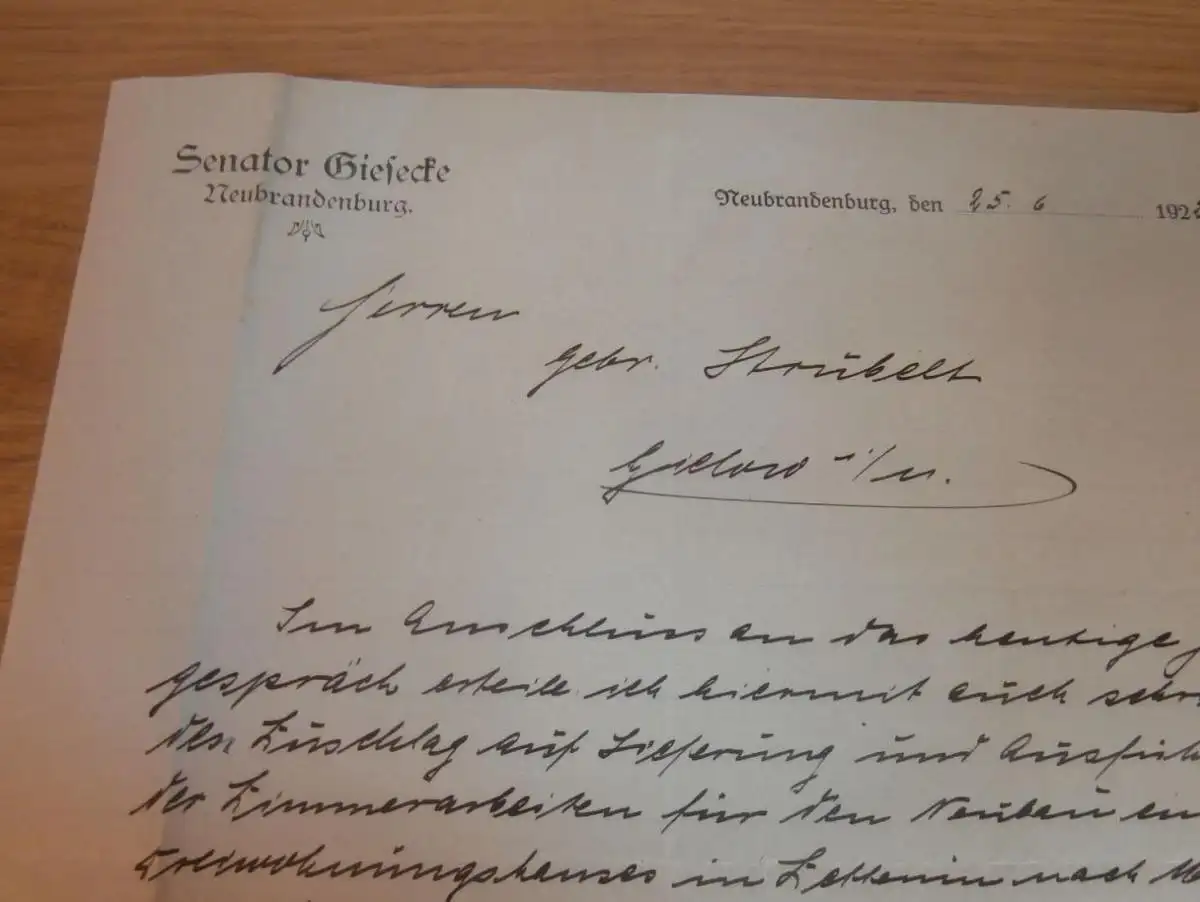 Senator Giesecke
Neubrandenburg.
Neubrandenburg, den 25. 6 192
Herren
Gebr. Strübelt
Gielow i/M.
Im Anschluss an das heutige
gespräch erteile ich hiermit auch schr
den Zuschlag auf Lieferung und Ausfüh
der Zimmerarbeiten für den Neubau ein
Dreiwohnungshauses in Zettemin nach